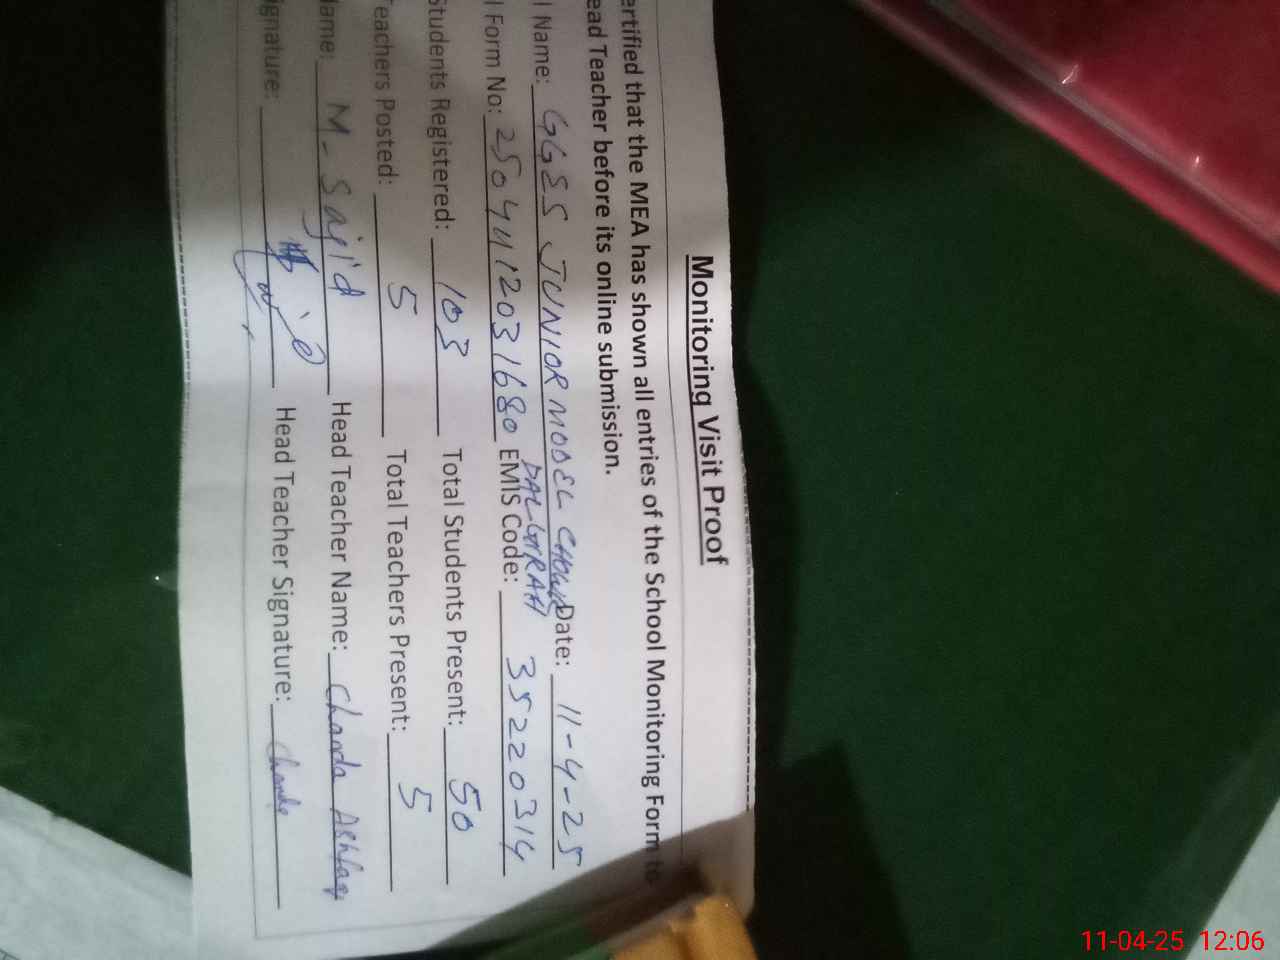 Monitoring Visit Proof
ertified that the MEA has shown all entries of the School Monitoring Form to
ead Teacher before its online submission.
l Name: GGES JUNIOR MODEL CHOWK Date: 11-4-25
DALGIRAH
l Form No: 2504112031680 EMIS Code: 35220314
Students Registered: 103 Total Students Present: 50
Teachers Posted: 5 Total Teachers Present: 5
Name: M-Sajid Head Teacher Name: Chanda Ashfaq
ignature: Head Teacher Signature: Chanda
11-04-25 12:06